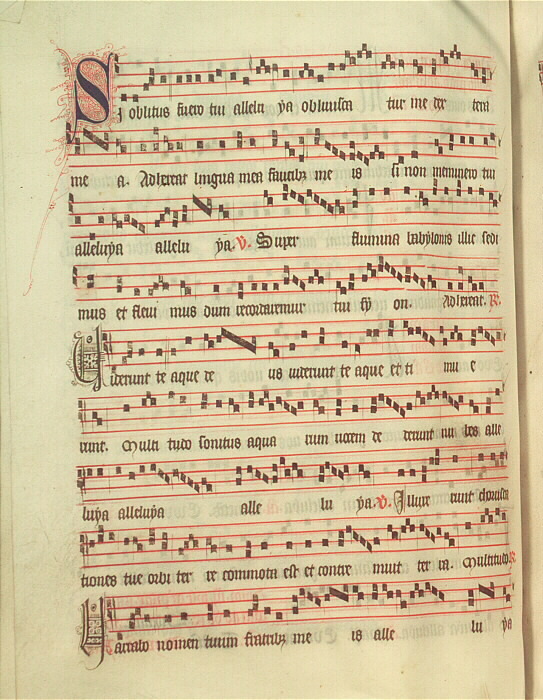 Si oblitus fuero tui allelu ya obliuisca tur me dex tera
me a. Adhereat lingua mea faucibz me is si non meminero tui
alleluya allelu ya. V. Super flumina babylonis illic sedi
mus et fleui mus dum recordaremur tui sy on. Adhereat. R.
Uiderunt te aque de us uiderunt te aque et ti mu e
runt. Multi tudo sonitus aqua rum uocem de derunt nu bes alle
luya alleluya alle lu ya. V. Illuxe runt chorusca
tiones tue orbi ter re commota est et contre muit ter ra. Multitudo R
Narrabo nomen tuum fratribz me is alle lu ya